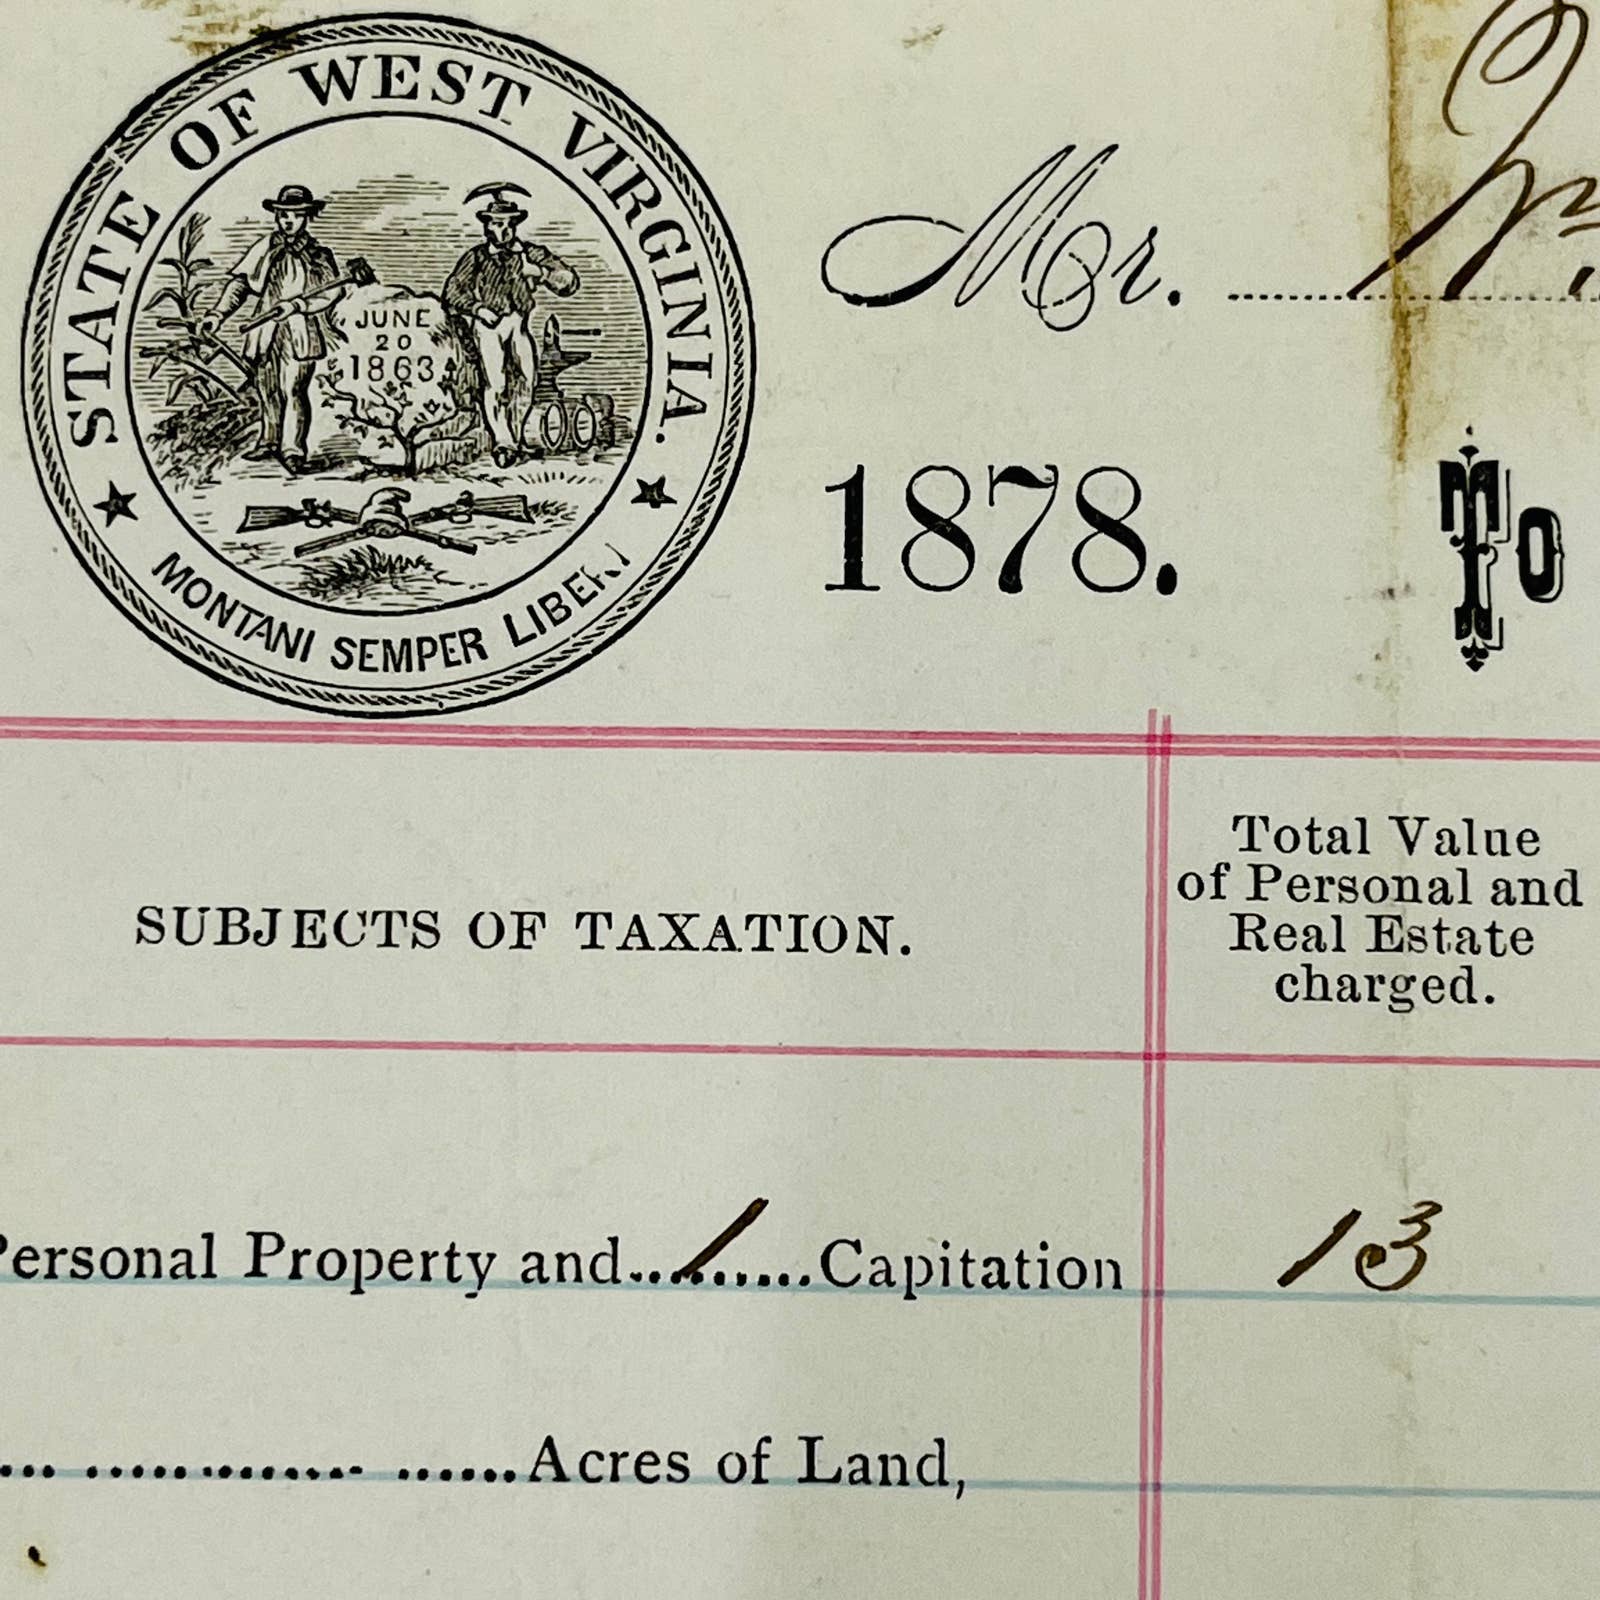 STATE OF WEST VIRGINIA.
JUNE
20
1863
MONTANI SEMPER LIBERI
Mr.
1878.
To
SUBJECTS OF TAXATION.
Total Value
of Personal and
Real Estate
charged.
Personal Property and 1 Capitation
13
Acres of Land,